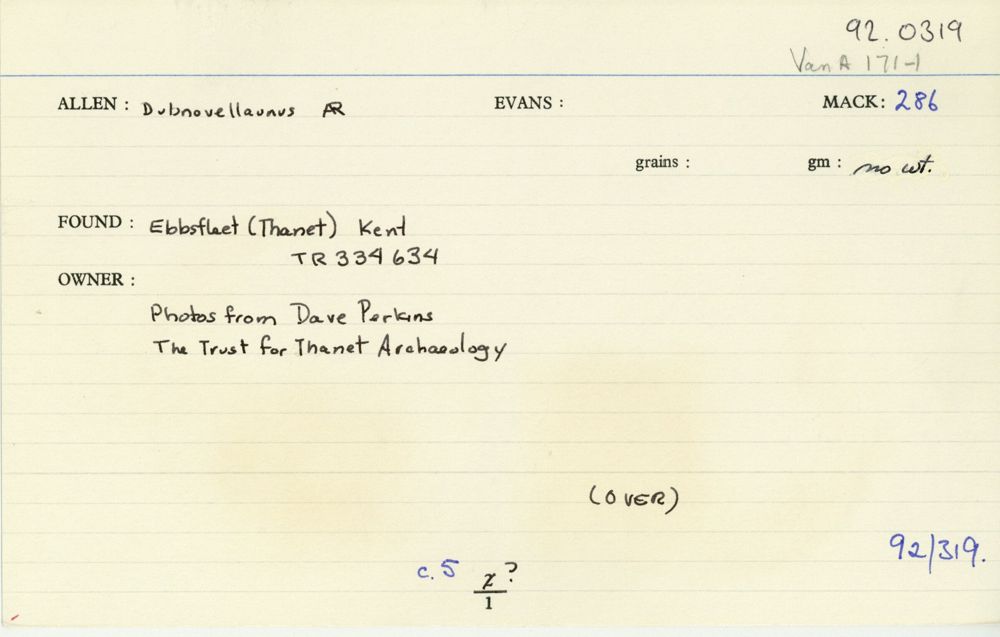 92.0319
Van A 171-1
ALLEN : Dubnovellaunus AR EVANS : MACK: 286
grains : gm : no wt.
FOUND : Ebbsfleet (Thanet) Kent
TR 334 634
OWNER :
Photos from Dave Perkins
The Trust for Thanet Archaeology
(OVER)
92/319.
c. 5 ?
1